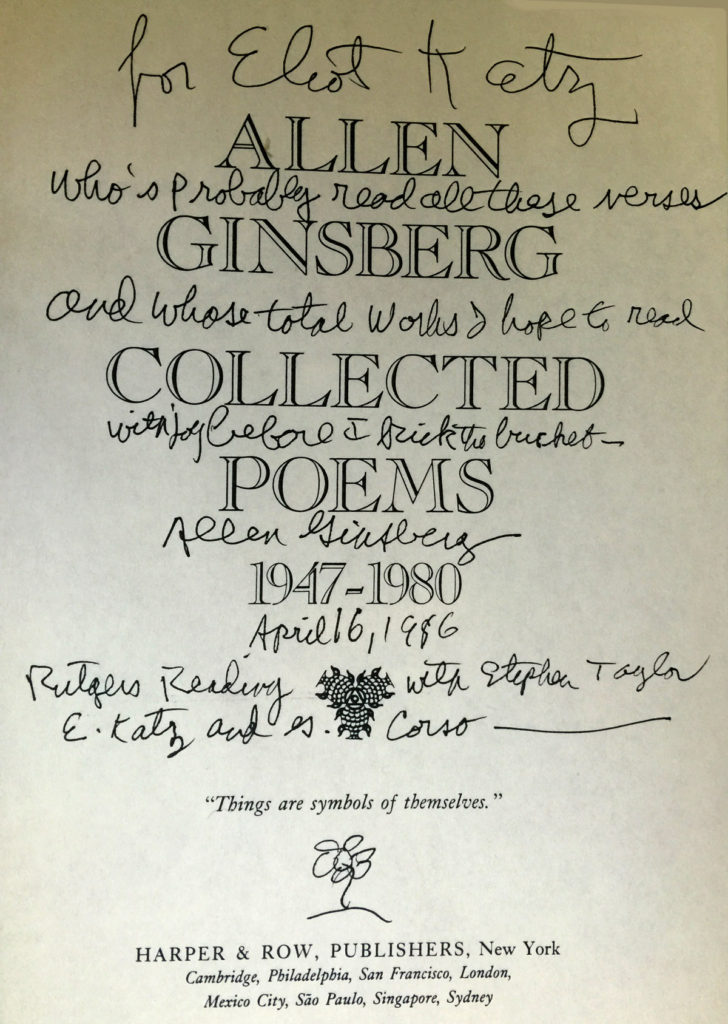 for Eliot Katz
ALLEN
who's probably read all these verses
GINSBERG
and whose total works I hope to read
COLLECTED
with joy before I kick the bucket —
POEMS
Allen Ginsberg
1947-1980
April 16, 1986
Rutgers Reading with Stephen Taylor
E. Katz and G. Corso —
“Things are symbols of themselves.”
HARPER & ROW, PUBLISHERS, New York
Cambridge, Philadelphia, San Francisco, London,
Mexico City, São Paulo, Singapore, Sydney